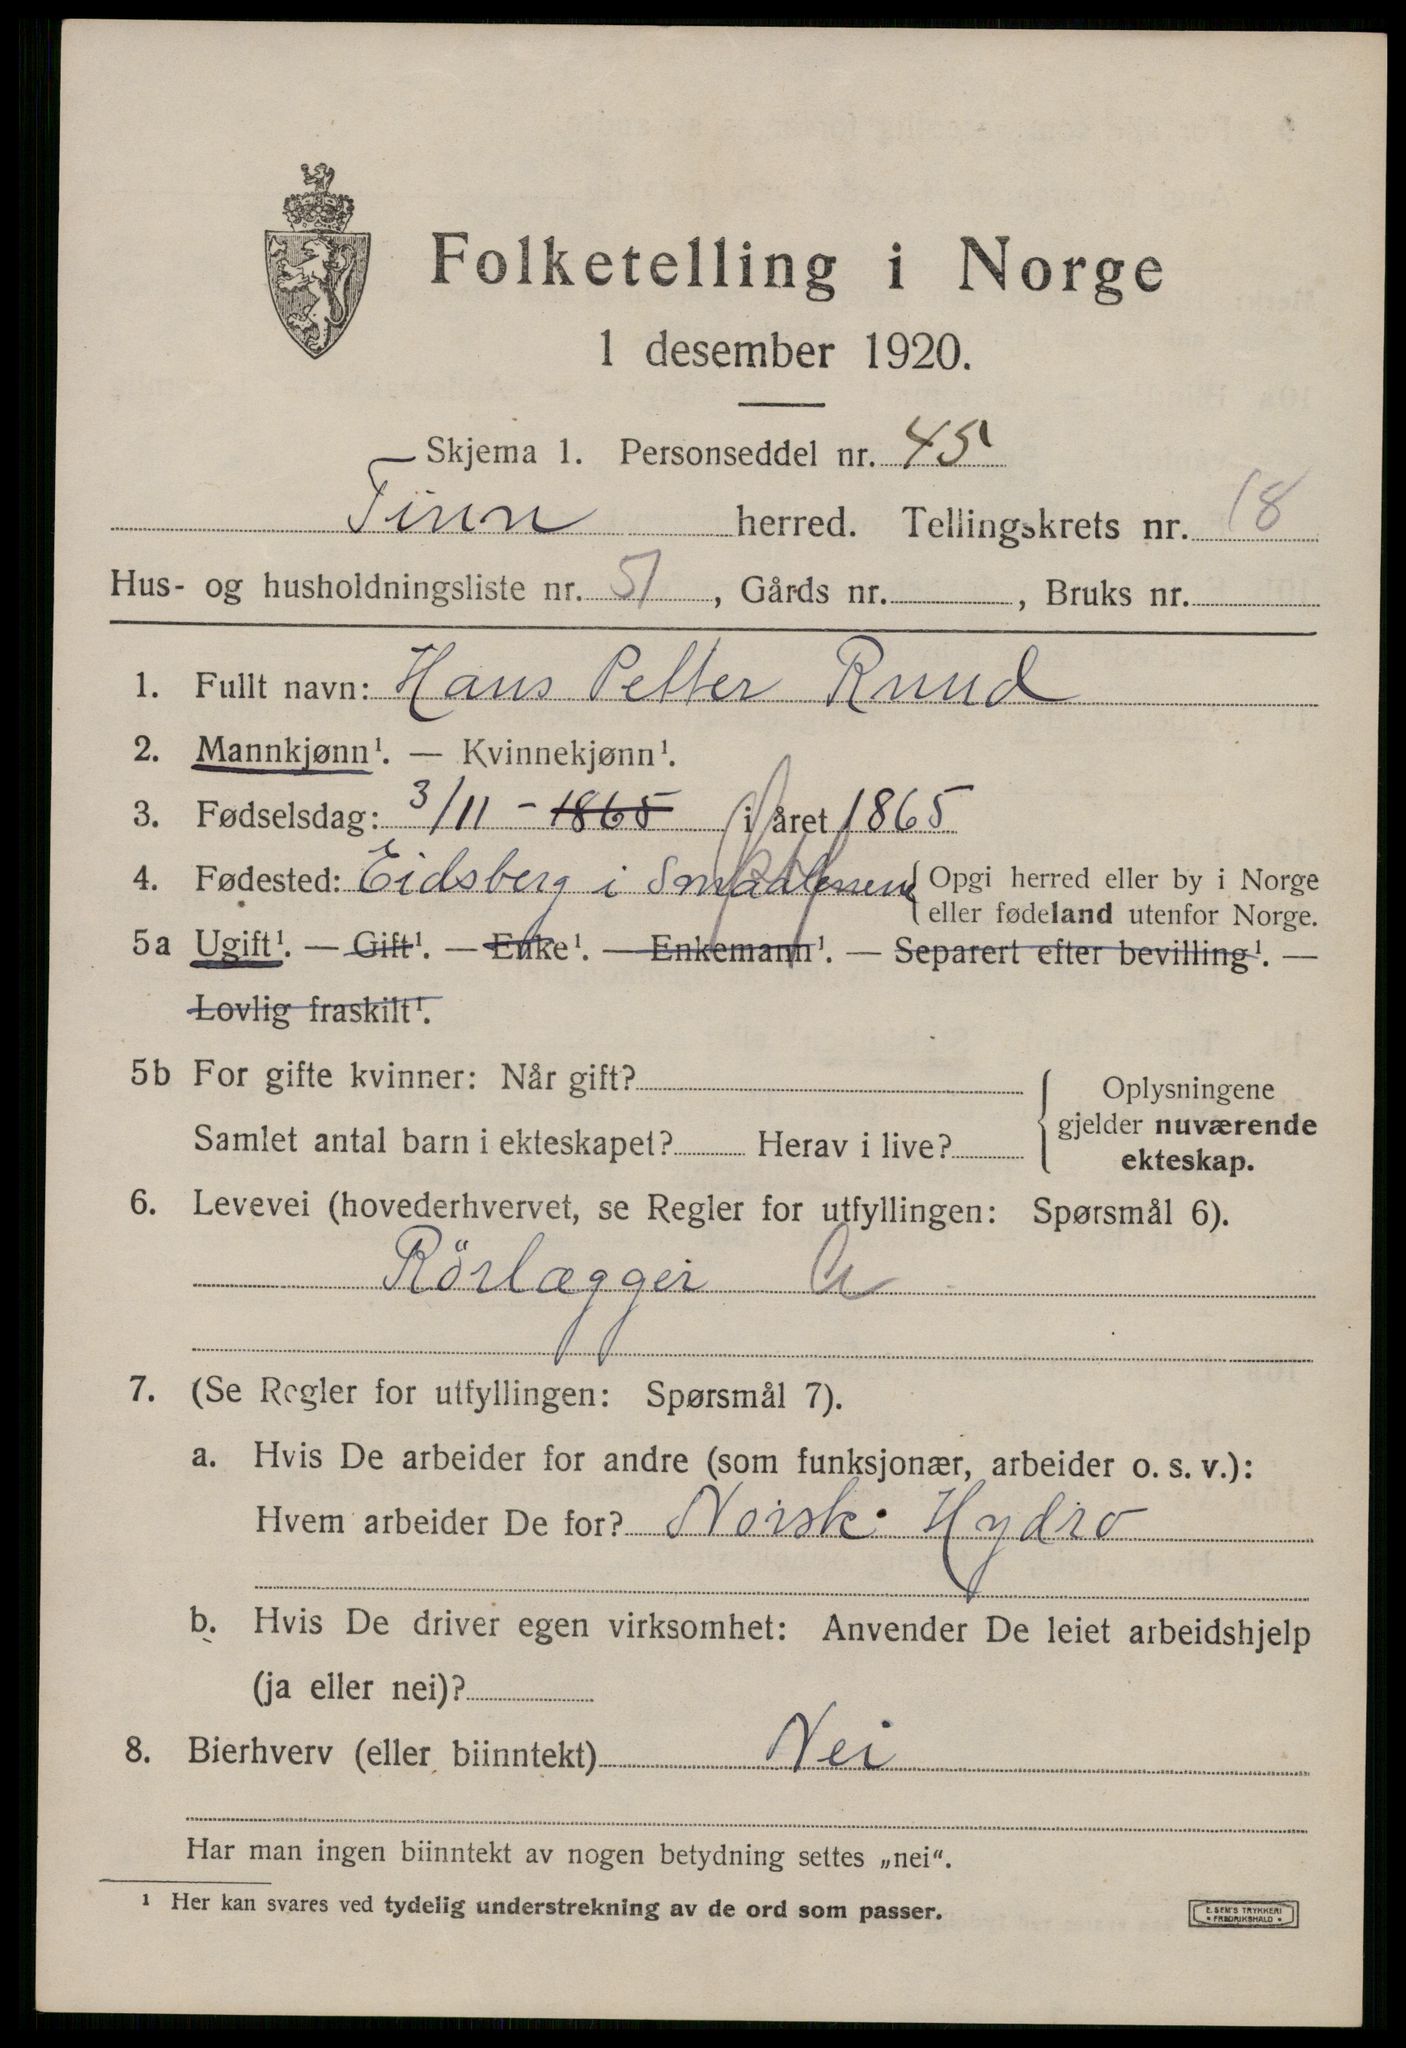 Folketelling i Norge
1 desember 1920.
Skjema 1. Personseddel nr. 45
Tinn herred. Tellingskrets nr. 18
Hus- og husholdningsliste nr. 51, Gårds nr. , Bruks nr.
1. Fullt navn: Hans Petter Ruud
2. Mannkjønn¹. — Kvinnekjønn¹.
3. Fødselsdag: 3/11 - 1865 i året 1865
4. Fødested: Eidsberg i Smaalenene { Opgi herred eller by i Norge
eller fødeland utenfor Norge.
5a Ugift¹. — Gift¹. — Enke¹. — Enkemann¹. — Separert efter bevilling¹. —
Lovlig fraskilt¹.
5b For gifte kvinner: Når gift?
Samlet antal barn i ekteskapet? Herav i live?
{ Oplysningene
gjelder nuværende
ekteskap.
6. Levevei (hovederhvervet, se Regler for utfyllingen: Spørsmål 6).
Rörlægger a
7. (Se Regler for utfyllingen: Spørsmål 7).
a. Hvis De arbeider for andre (som funksjonær, arbeider o. s. v.):
Hvem arbeider De for? Norsk Hydro
b. Hvis De driver egen virksomhet: Anvender De leiet arbeidshjelp
(ja eller nei)?
8. Bierhverv (eller biinntekt) Nei
Har man ingen biinntekt av nogen betydning settes „nei“.
¹ Her kan svares ved tydelig understrekning av de ord som passer.
E. SEM'S TRYKKERI
• FREDRIKSHALD •